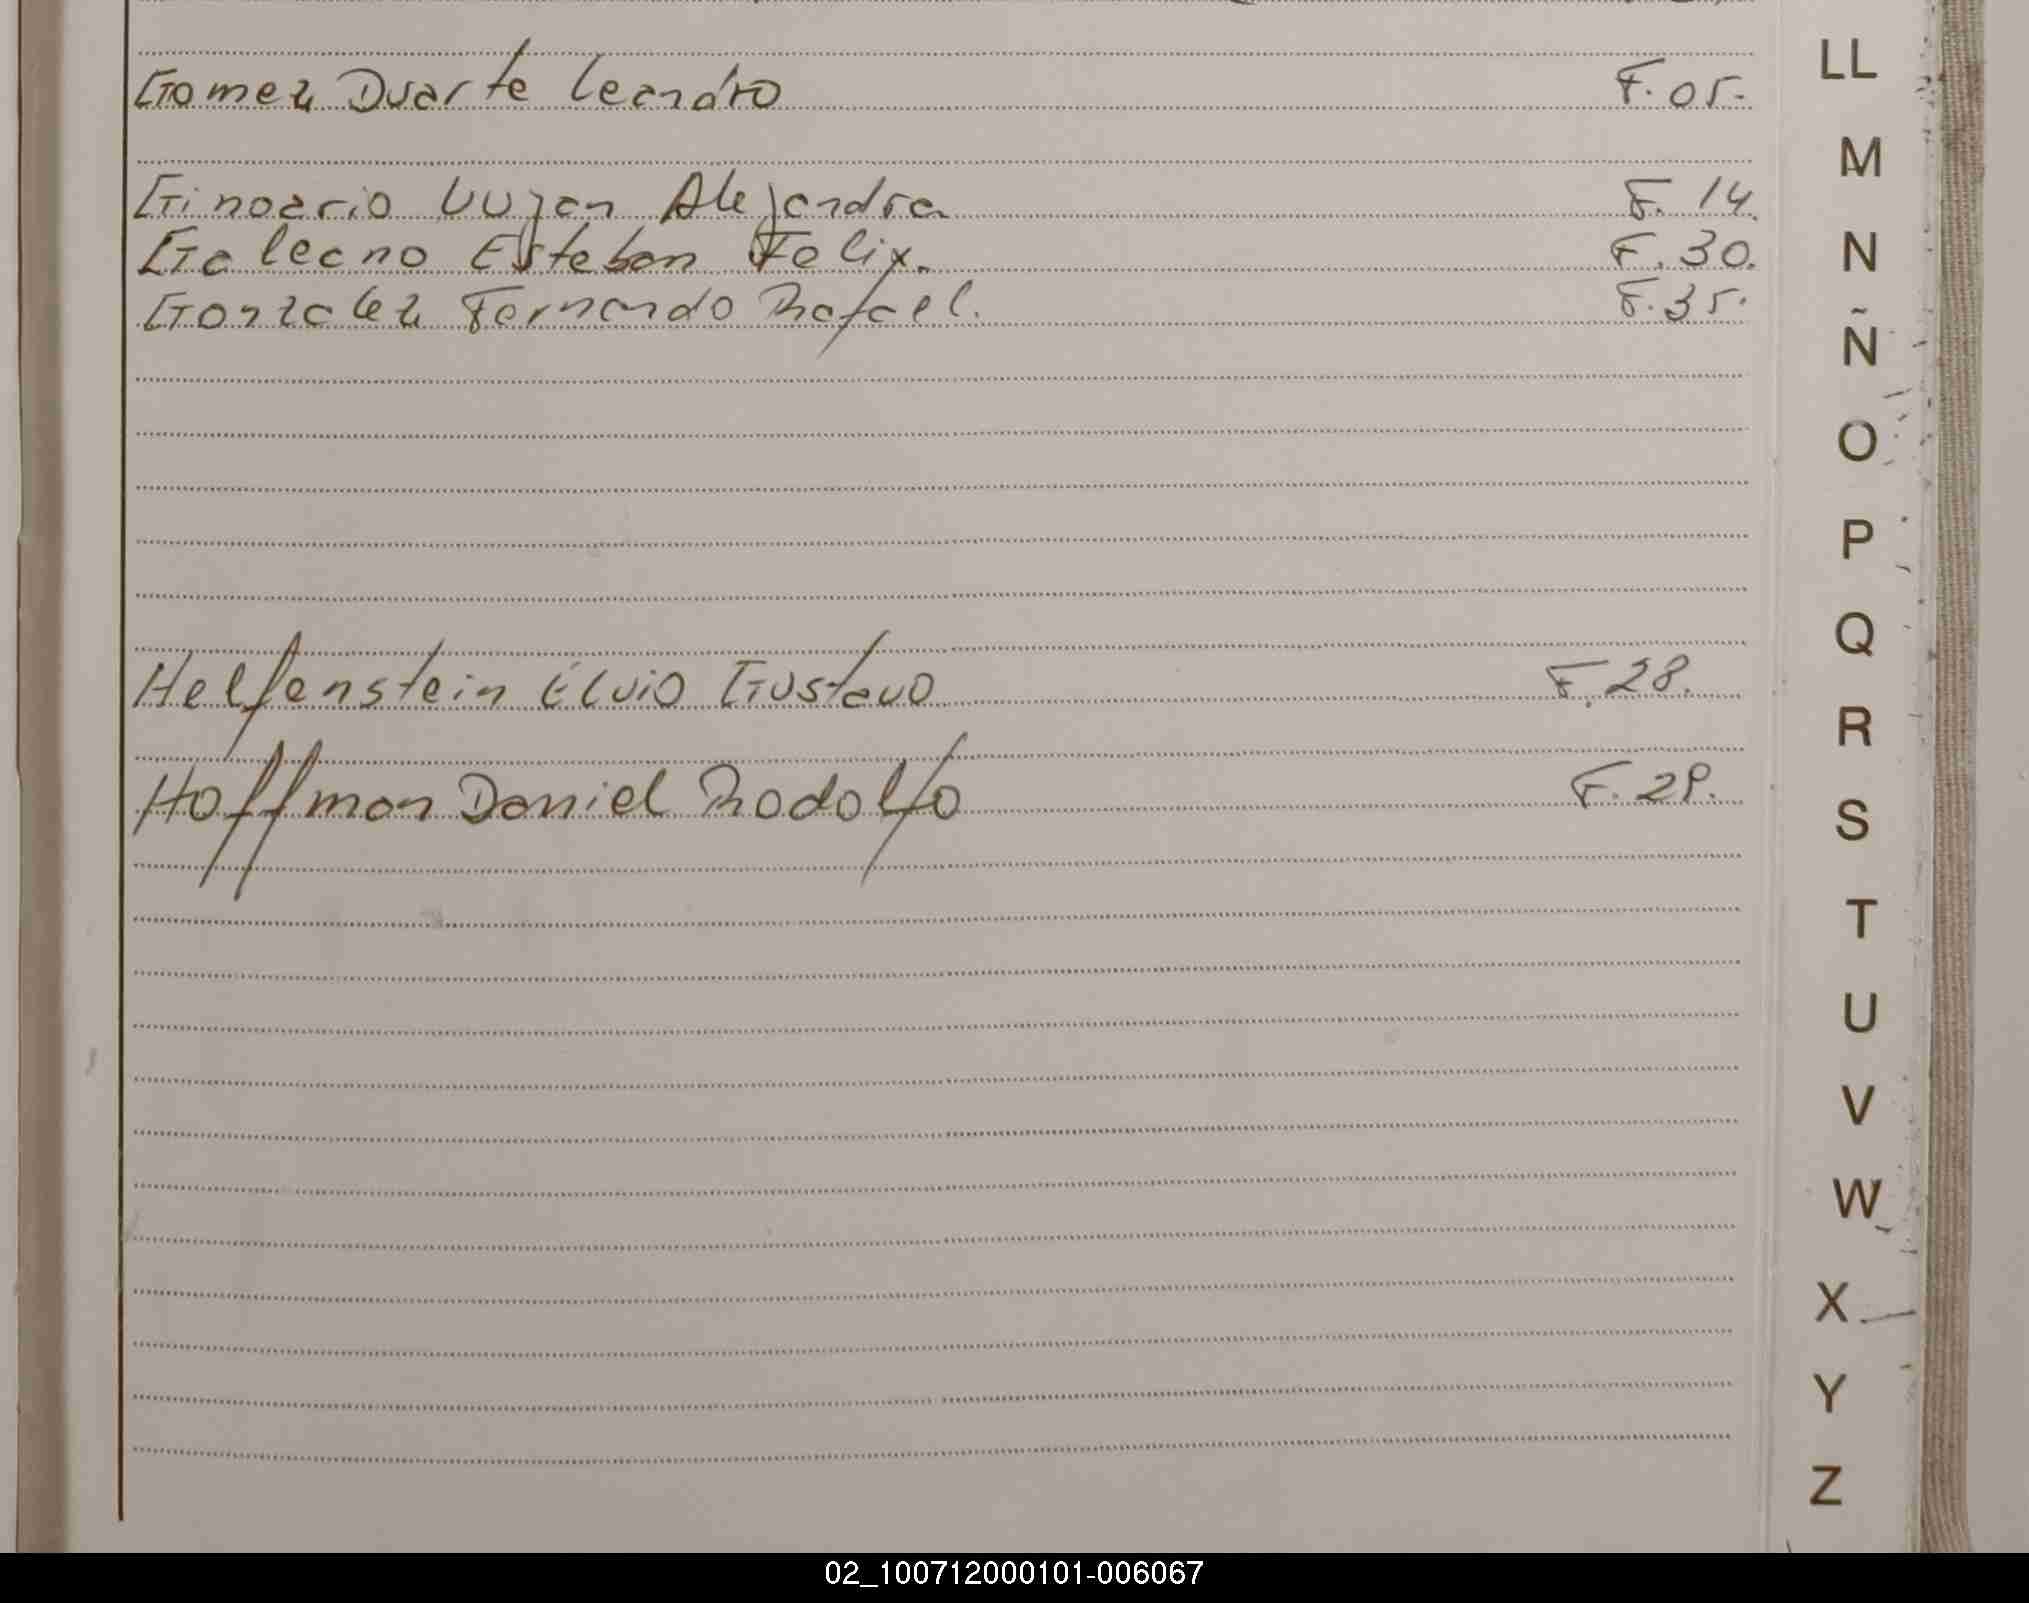 Gomez Duarte Leandro F. 05.
Ginoario Lujan Alejandra F. 14.
Galeano Esteban Felix. F. 30.
Gonzalez Fernando Rafael. F. 35.
Helfenstein Elvio Gustavo F. 28.
Hoffman Daniel Rodolfo F. 29.
LL
M
N
Ñ
O
P
Q
R
S
T
U
V
W
X
Y
Z
02_100712000101-006067